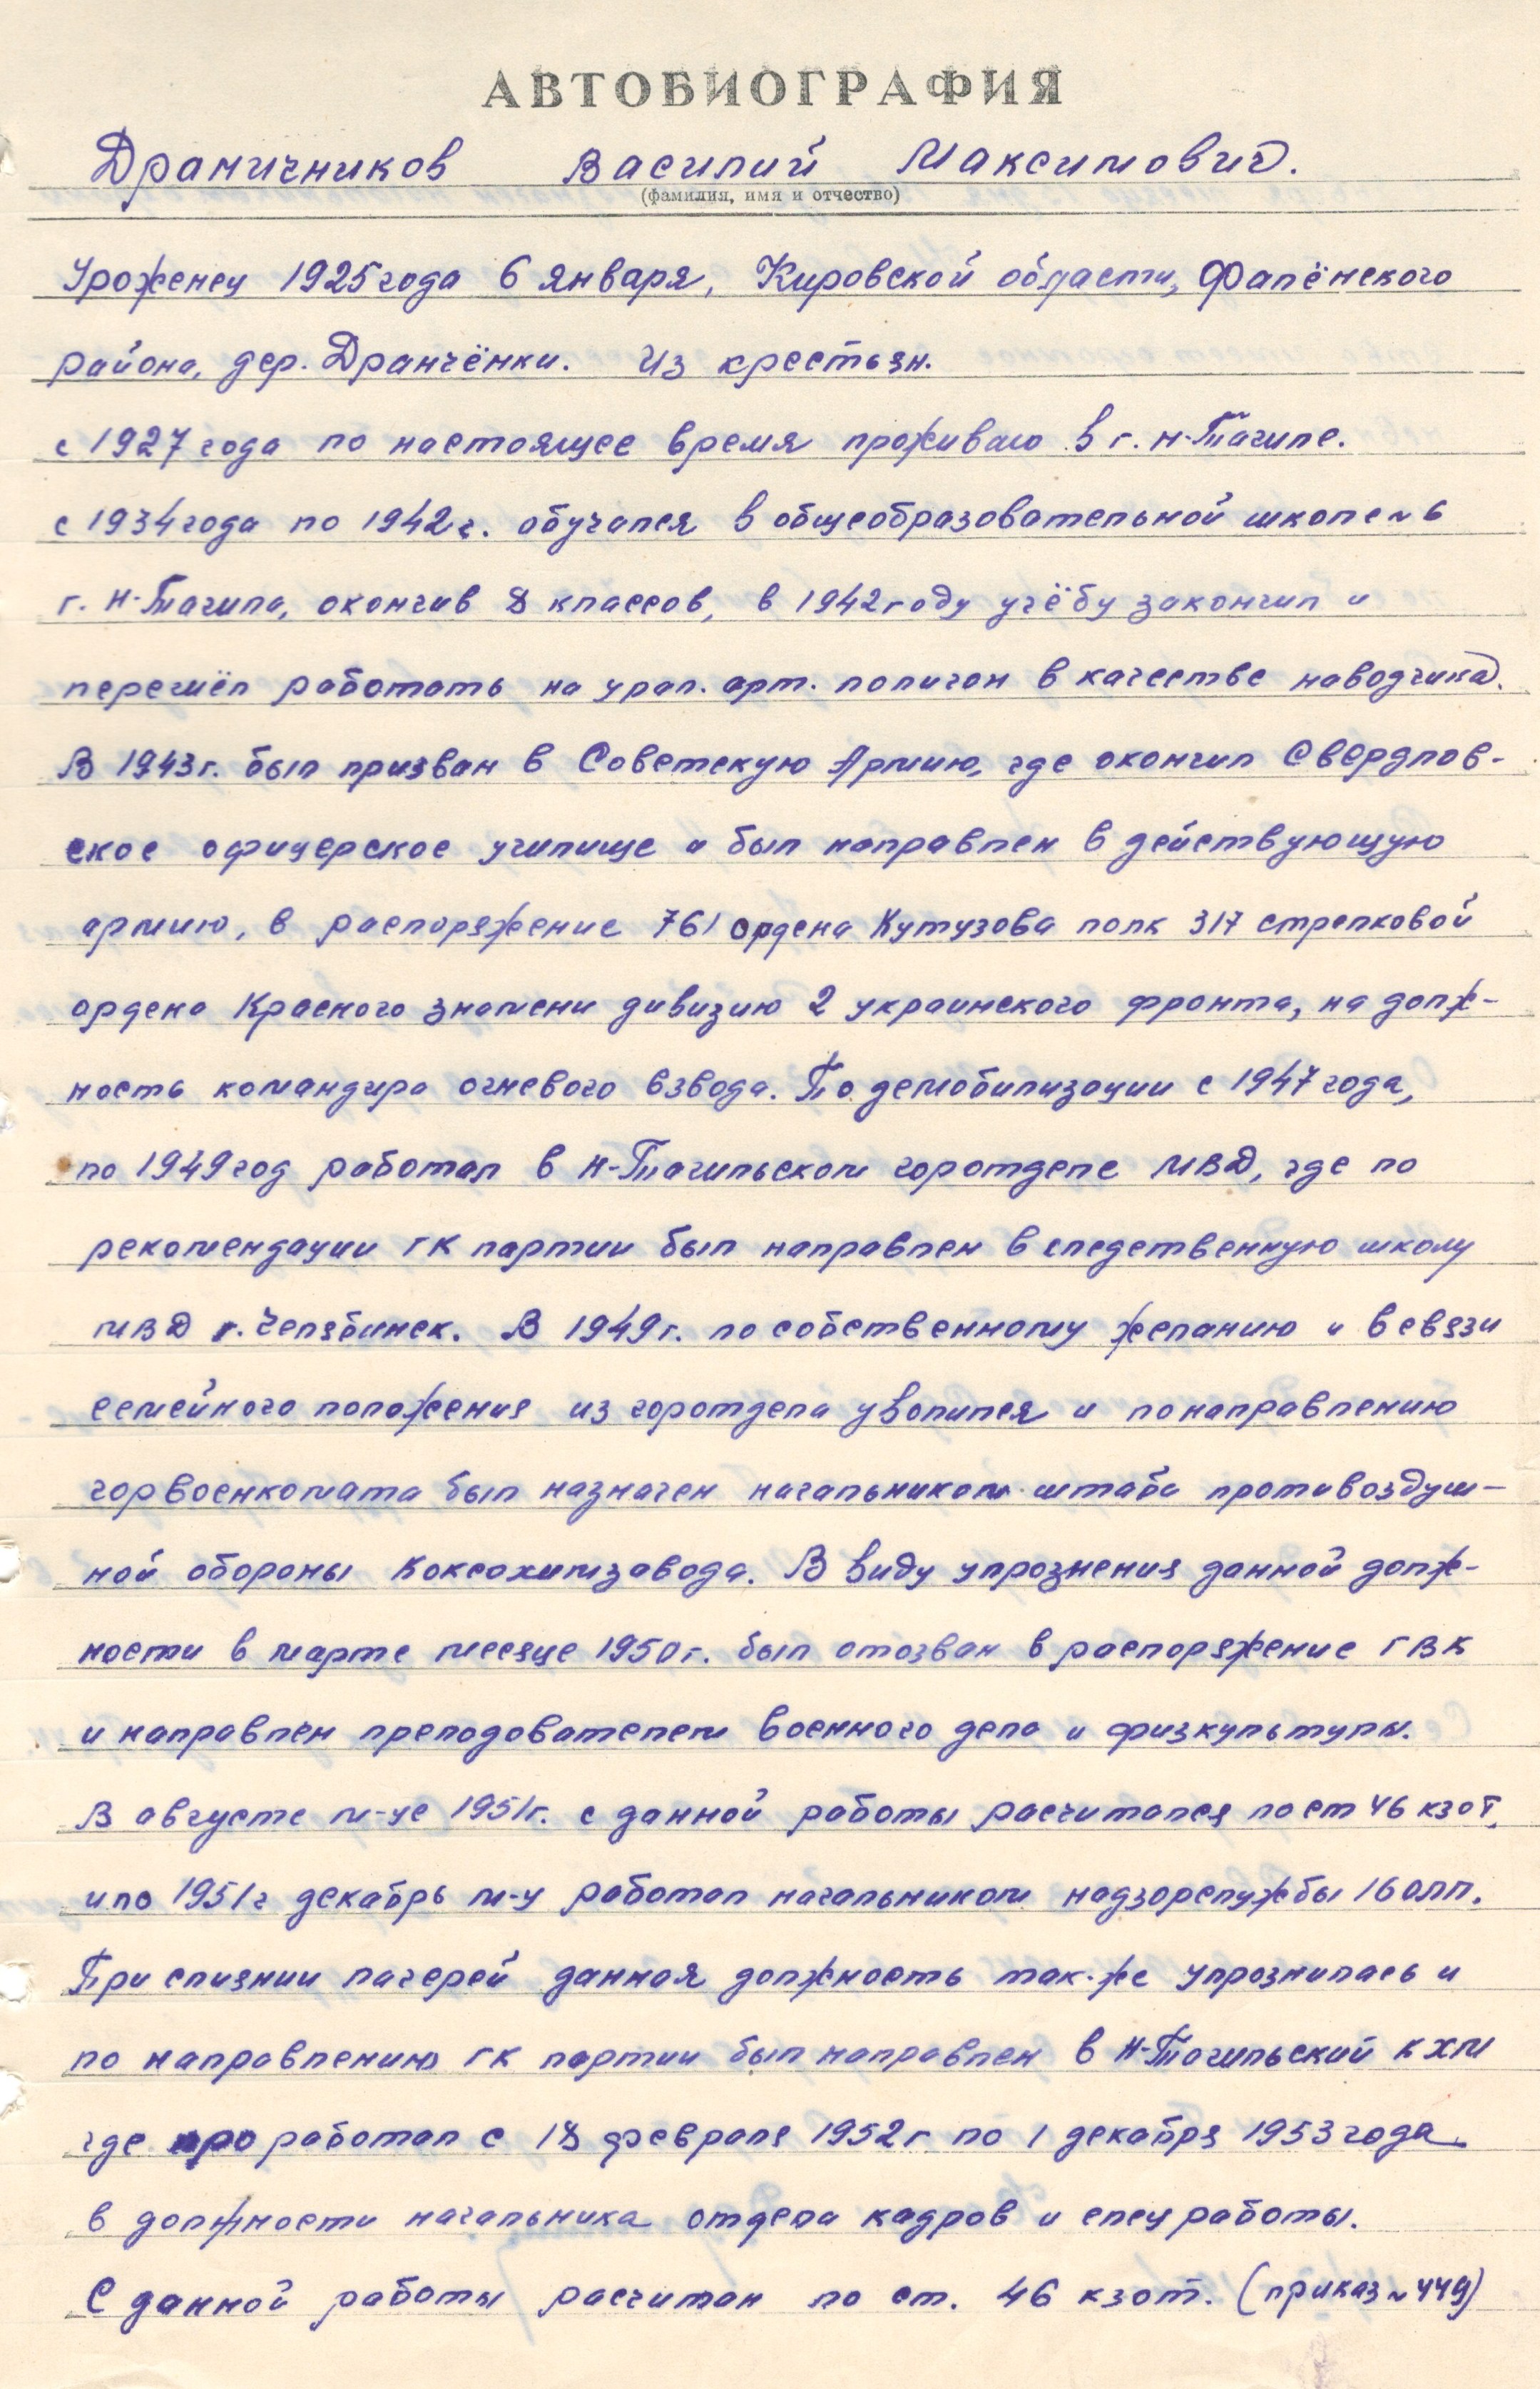 АВТОБИОГРАФИЯ
Драничников Василий Максимович.
(фамилия, имя и отчество)
Уроженец 1925 года 6 января, Кировской области, Фалёнского
района, дер. Дранчёнки. Из крестьян.
с 1927 года по настоящее время проживаю в г. Н-Тагиле.
с 1934 года по 1942 г. обучался в общеобразовательной школе № 6
г. Н-Тагила, окончив 8 классов, в 1942 году учёбу закончил и
перешёл работать на урал. арт. полигон в качестве наводчика.
В 1943 г. был призван в Советскую Армию, где окончил Свердлов-
ское офицерское училище и был направлен в действующую
армию, в распоряжение 761 ордена Кутузова полк 317 стрелковой
ордена Красного знамени дивизию 2 украинского фронта, на долж-
ность командира огневого взвода. По демобилизации с 1947 года,
по 1949 год работал в Н-Тагильском горотделе МВД, где по
рекомендации ГК партии был направлен в следственную школу
МВД г. Челябинск. В 1949 г. по собственному желанию и в связи
семейного положения из горотдела уволился и по направлению
горвоенкомата был назначен начальником штаба противоздуш-
ной обороны Коксохимзавода. В виду упрознения данной долж-
ности в марте месяце 1950 г. был отозван в распоряжение ГВК
и направлен преподователем военного дела и физкультуры.
В августе м-це 1951 г. с данной работы расчитался по ст 46 кзот,
и по 1951 г декабрь м-ц работал начальником надзорслужбы 16 олп.
При слиянии лагерей данная должность так-же упрознилась и
по направлению ГК партии был направлен в Н-Тагильский КХМ
где проработал с 18 февраля 1952 г по 1 декабря 1953 года
в должности начальника отдела кадров и спец работы.
С данной работы расчитан по ст. 46 кзот. (приказ № 449)